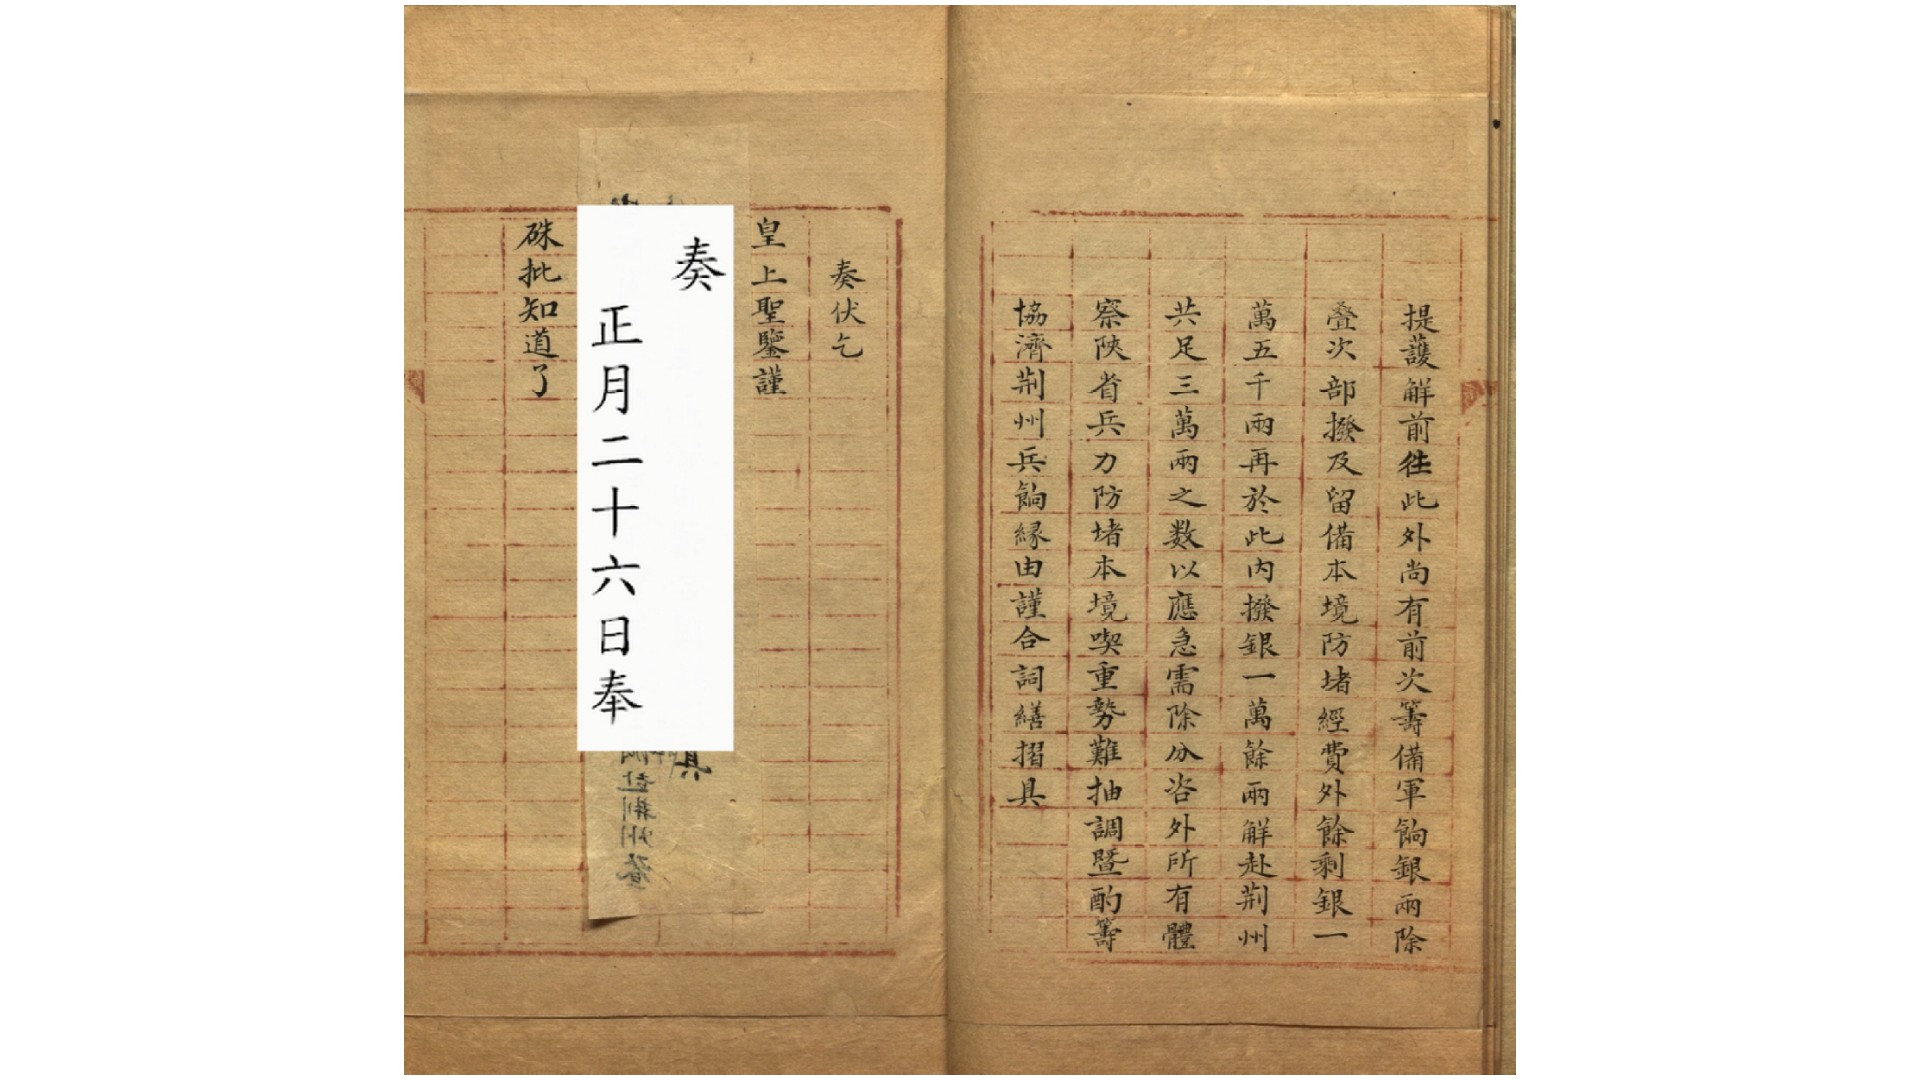 提護解前往此外尚有前次籌備軍餉銀兩除
叠次部撥及留備本境防堵經費外餘剩銀一
萬五千兩再於此内撥銀一萬餘兩解赴荆州
共足三萬兩之数以應急需除分咨外所有體
察陜省兵力防堵本境喫重勢難抽調暨酌籌
協濟荆州兵餉縁由謹合詞繕摺具
奏伏乞
皇上聖鑒謹
奏
正月二十六日奉
硃批知道了